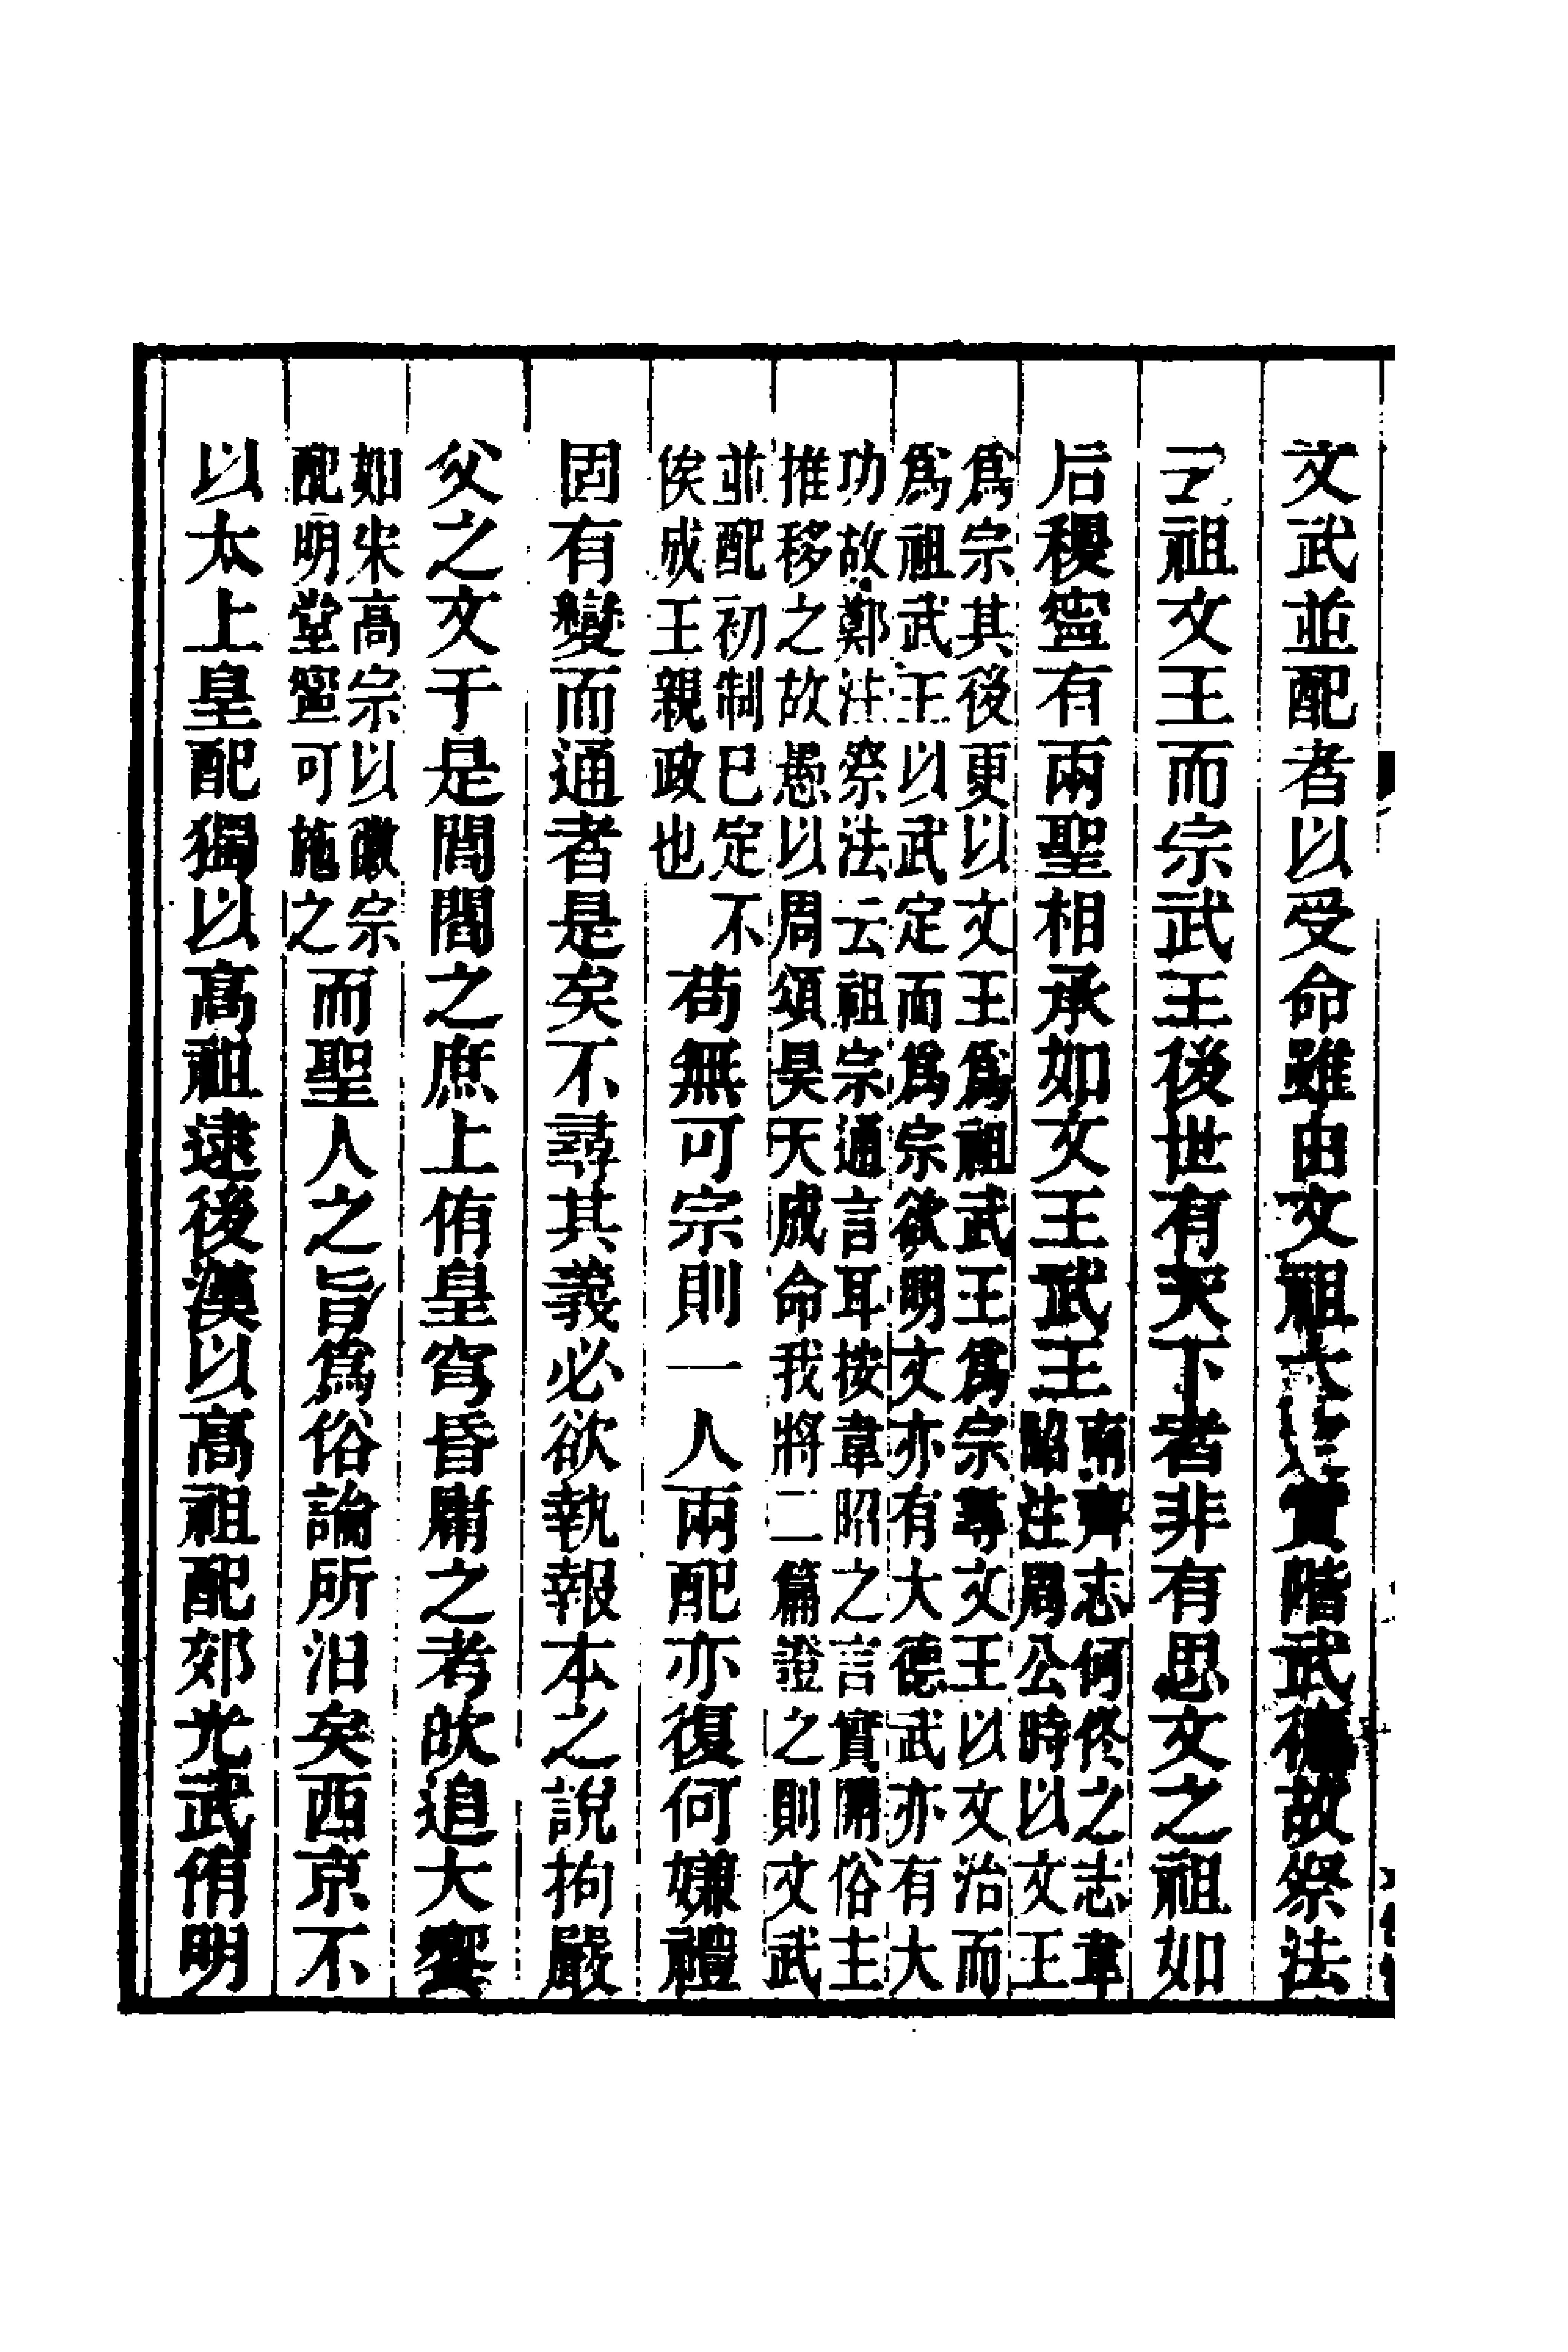 文武並配者以受命雖由文祖大定實階武德故祭法
云祖文王而宗武王後世有天下者非有思文之祖如
后稷寧有兩聖相承如文王武王
南齊志何佟之志韋
昭注周公時以文王
爲宗其後更以文王爲祖武王爲宗尊文王以文治而
爲祖武王以武定而爲宗欲明文亦有大德武亦有大
功故鄭注祭法云祖宗通言耳按韋昭之言實開俗主
推移之故愚以周頌昊天成命我將二篇證之則文武
並配初制已定不
俟成王親政也
苟無可宗則一人兩配亦復何嫌禮
固有變而通者是矣不尋其義必欲執報本之說拘嚴
父之文于是閭閻之庶上侑皇穹昏庸之考欿追大饗
如宋高宗以徽宗
配明堂寧可施之
而聖人之旨爲俗論所汨矣西京不
以太上皇配獨以高祖逮後漢以高祖配郊光武侑明